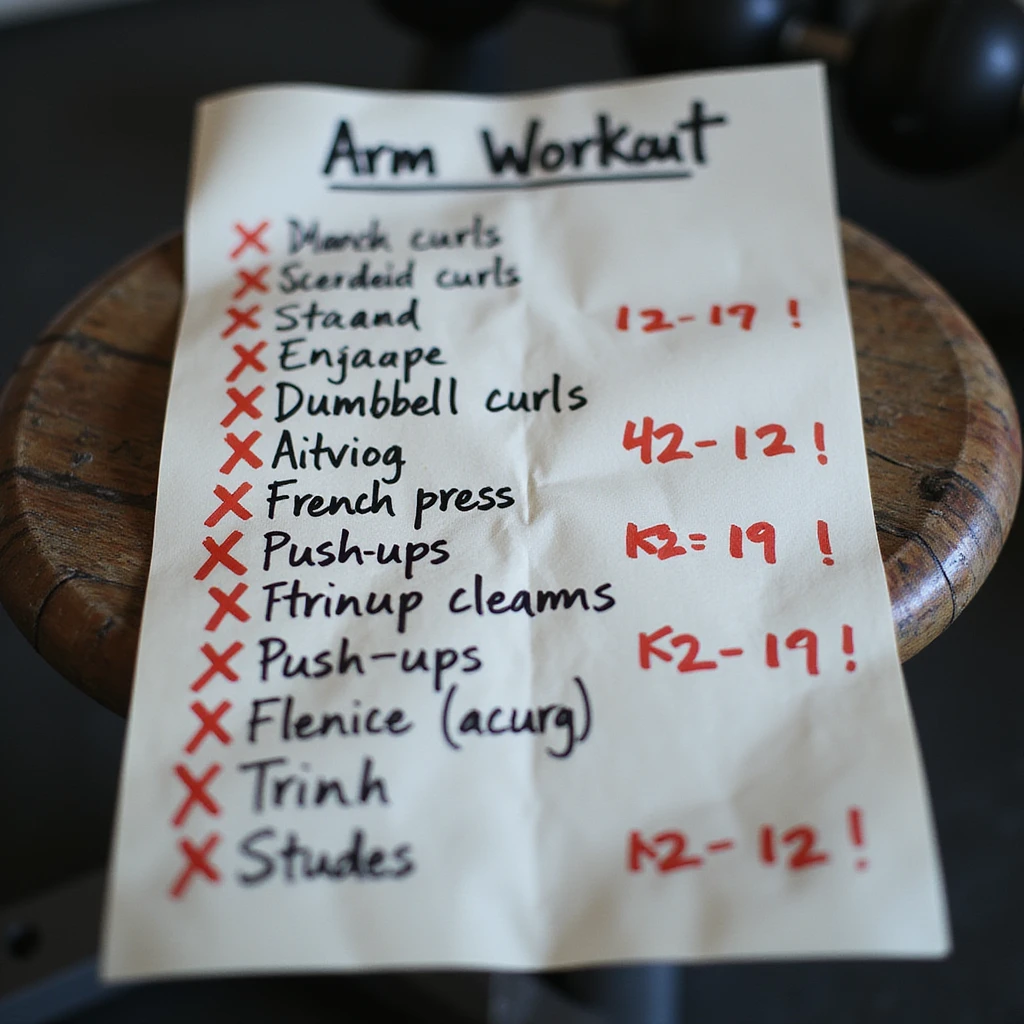 Arm Workout
curls
Scerdeid curls
Staand 12-19 !
Engaape
Dumbbell curls
Aitviog 42-12 !
French press
Push-ups K2= 19 !
Ftrinup cleamms
Push-ups K2-19 !
Flenice (acurg)
Trinh
Studes K2-12 !